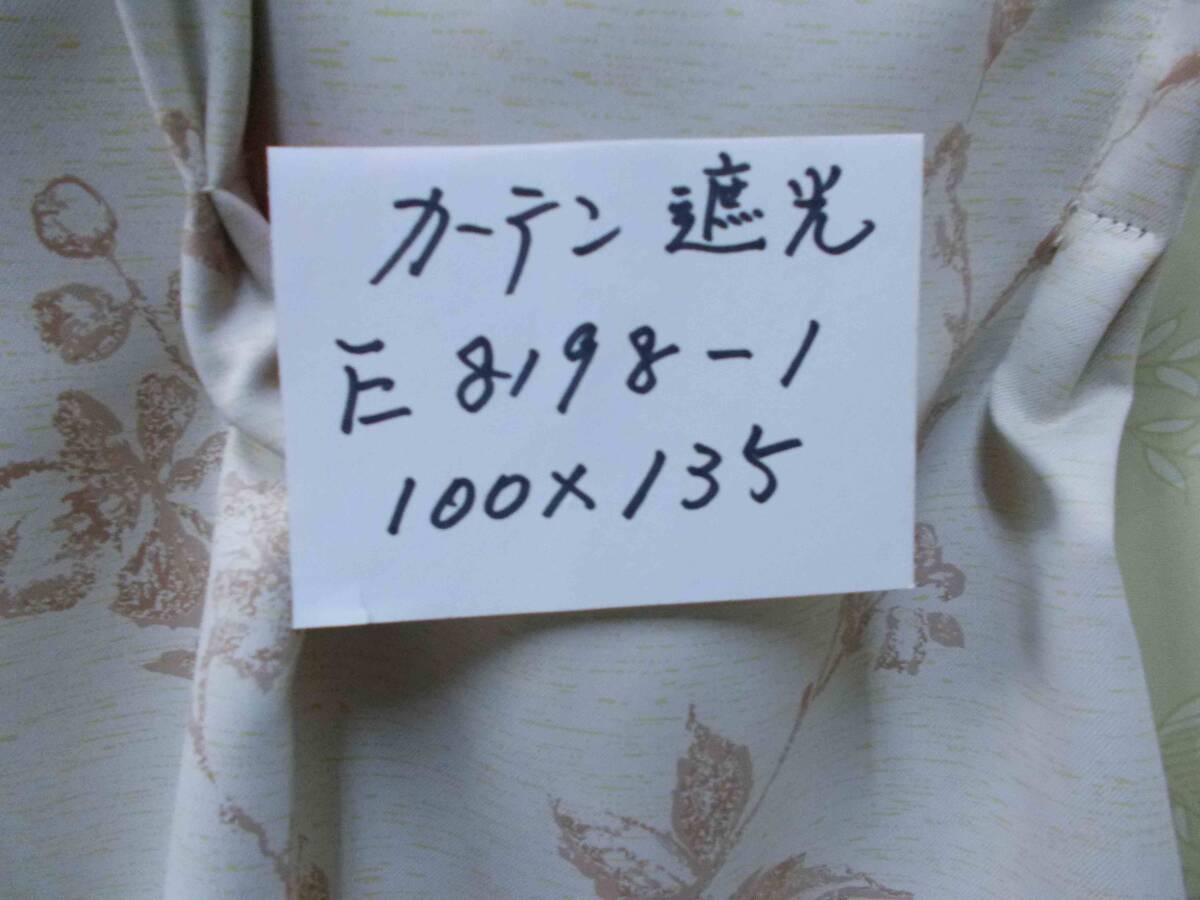 カーテン 遮光
E 8198-1
100×135